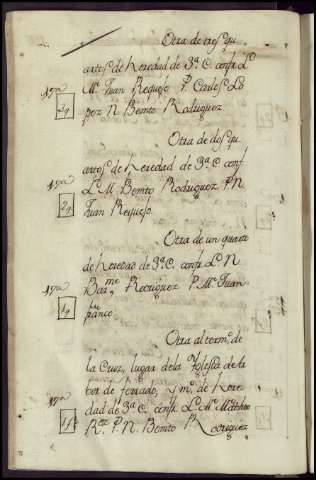 Otra de tres qu
artos de heredad de 3ª C. confr. L.
Mn. Juan Requejo P. Carlos Lo
pez N. Benito Rodriguez
17ª
3q
Otra de dos qu
artos de heredad de 3ª C. conf
L. M. Benito Rodriguez P. N.
Juan Requejo
17ª
2q
Otra de un quarto
de heredad de 3ª C. confr. L. N.
Barme. Rodriguez P. Mn. Juan
franco
17ª
1q
Otra al termo. de
la Cruz, lugar dela Yglesia de
de forrado, mo. de here
dad de 3ª C. confr. L. Mn. Matheo
Rez. P. N. Benito Rodriguez
17ª